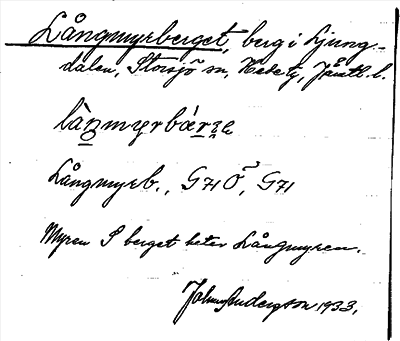 Långmyrberget, berg i Ljung-
dalen, Storsjö sn, Hede tg, Jämtl. l.
Långmyrb., G71 Ö, G71
Myren S berget heter Långmyren.
John Anderzon 1933.